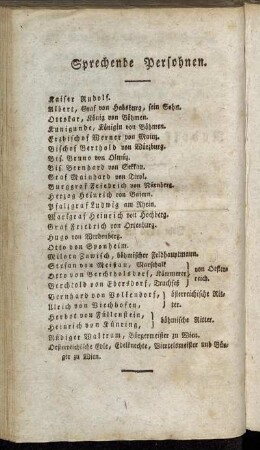 Sprechende Persohnen.
Kaiser Rudolf.
Albert, Graf von Habsburg, sein Sohn.
Ottokar, König von Böhmen.
Kunigunde, Königin von Böhmen.
Erzbischof Werner von Mainz.
Bischof Berthold von Würzburg.
Bis. Bruno von Olmütz.
Bis. Bernhard von Sekkau.
Graf Mainhard von Tirol.
Burggraf Friedrich von Nürnberg.
Herzog Heinrich von Baiern.
Pfalzgraf Ludwig am Rhein.
Markgraf Heinrich von Hochberg.
Graf Friedrich von Ortenburg.
Hugo von Werdenberg.
Otto von Sponheim.
Milota Zawisch, böhmischer Feldhauptmann.
Stefan von Meissau, Marschall
Otto von Berchtoldsdorf, Kämmerer
Berchtold von Ebersdorf, Truchseß
von Oester-
reich.
Bernhard von Volkendorf,
Ulrich von Viechhofen,
österreichische Rit-
ter.
Herbot von Füllenstein,
Heinrich von Künring,
böhmische Ritter.
Rüdiger Waltram, Bürgermeister zu Wien.
Oesterreichische Edle, Edelknechte, Viertelsmeister und Bür-
ger zu Wien.